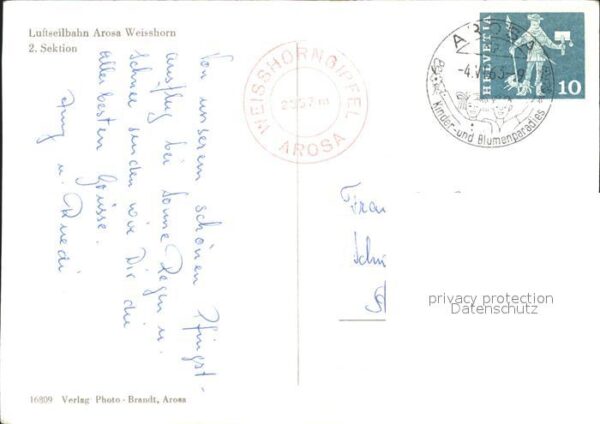 Luftseilbahn Arosa Weisshorn
2. Sektion
Von unserem schönen Pfingst-
ausflug bei Sonne Regen u.
Schnee senden wir Dir die
allerbesten Grüsse.
u. Ruedi
WEISSHORNGIPFEL
2657 m
AROSA
AROSA
Kinder- und Blumenparadies
HELVETIA
10
Frau
privacy protection
Datenschutz
16809 Verlag Photo-Brandt, Arosa